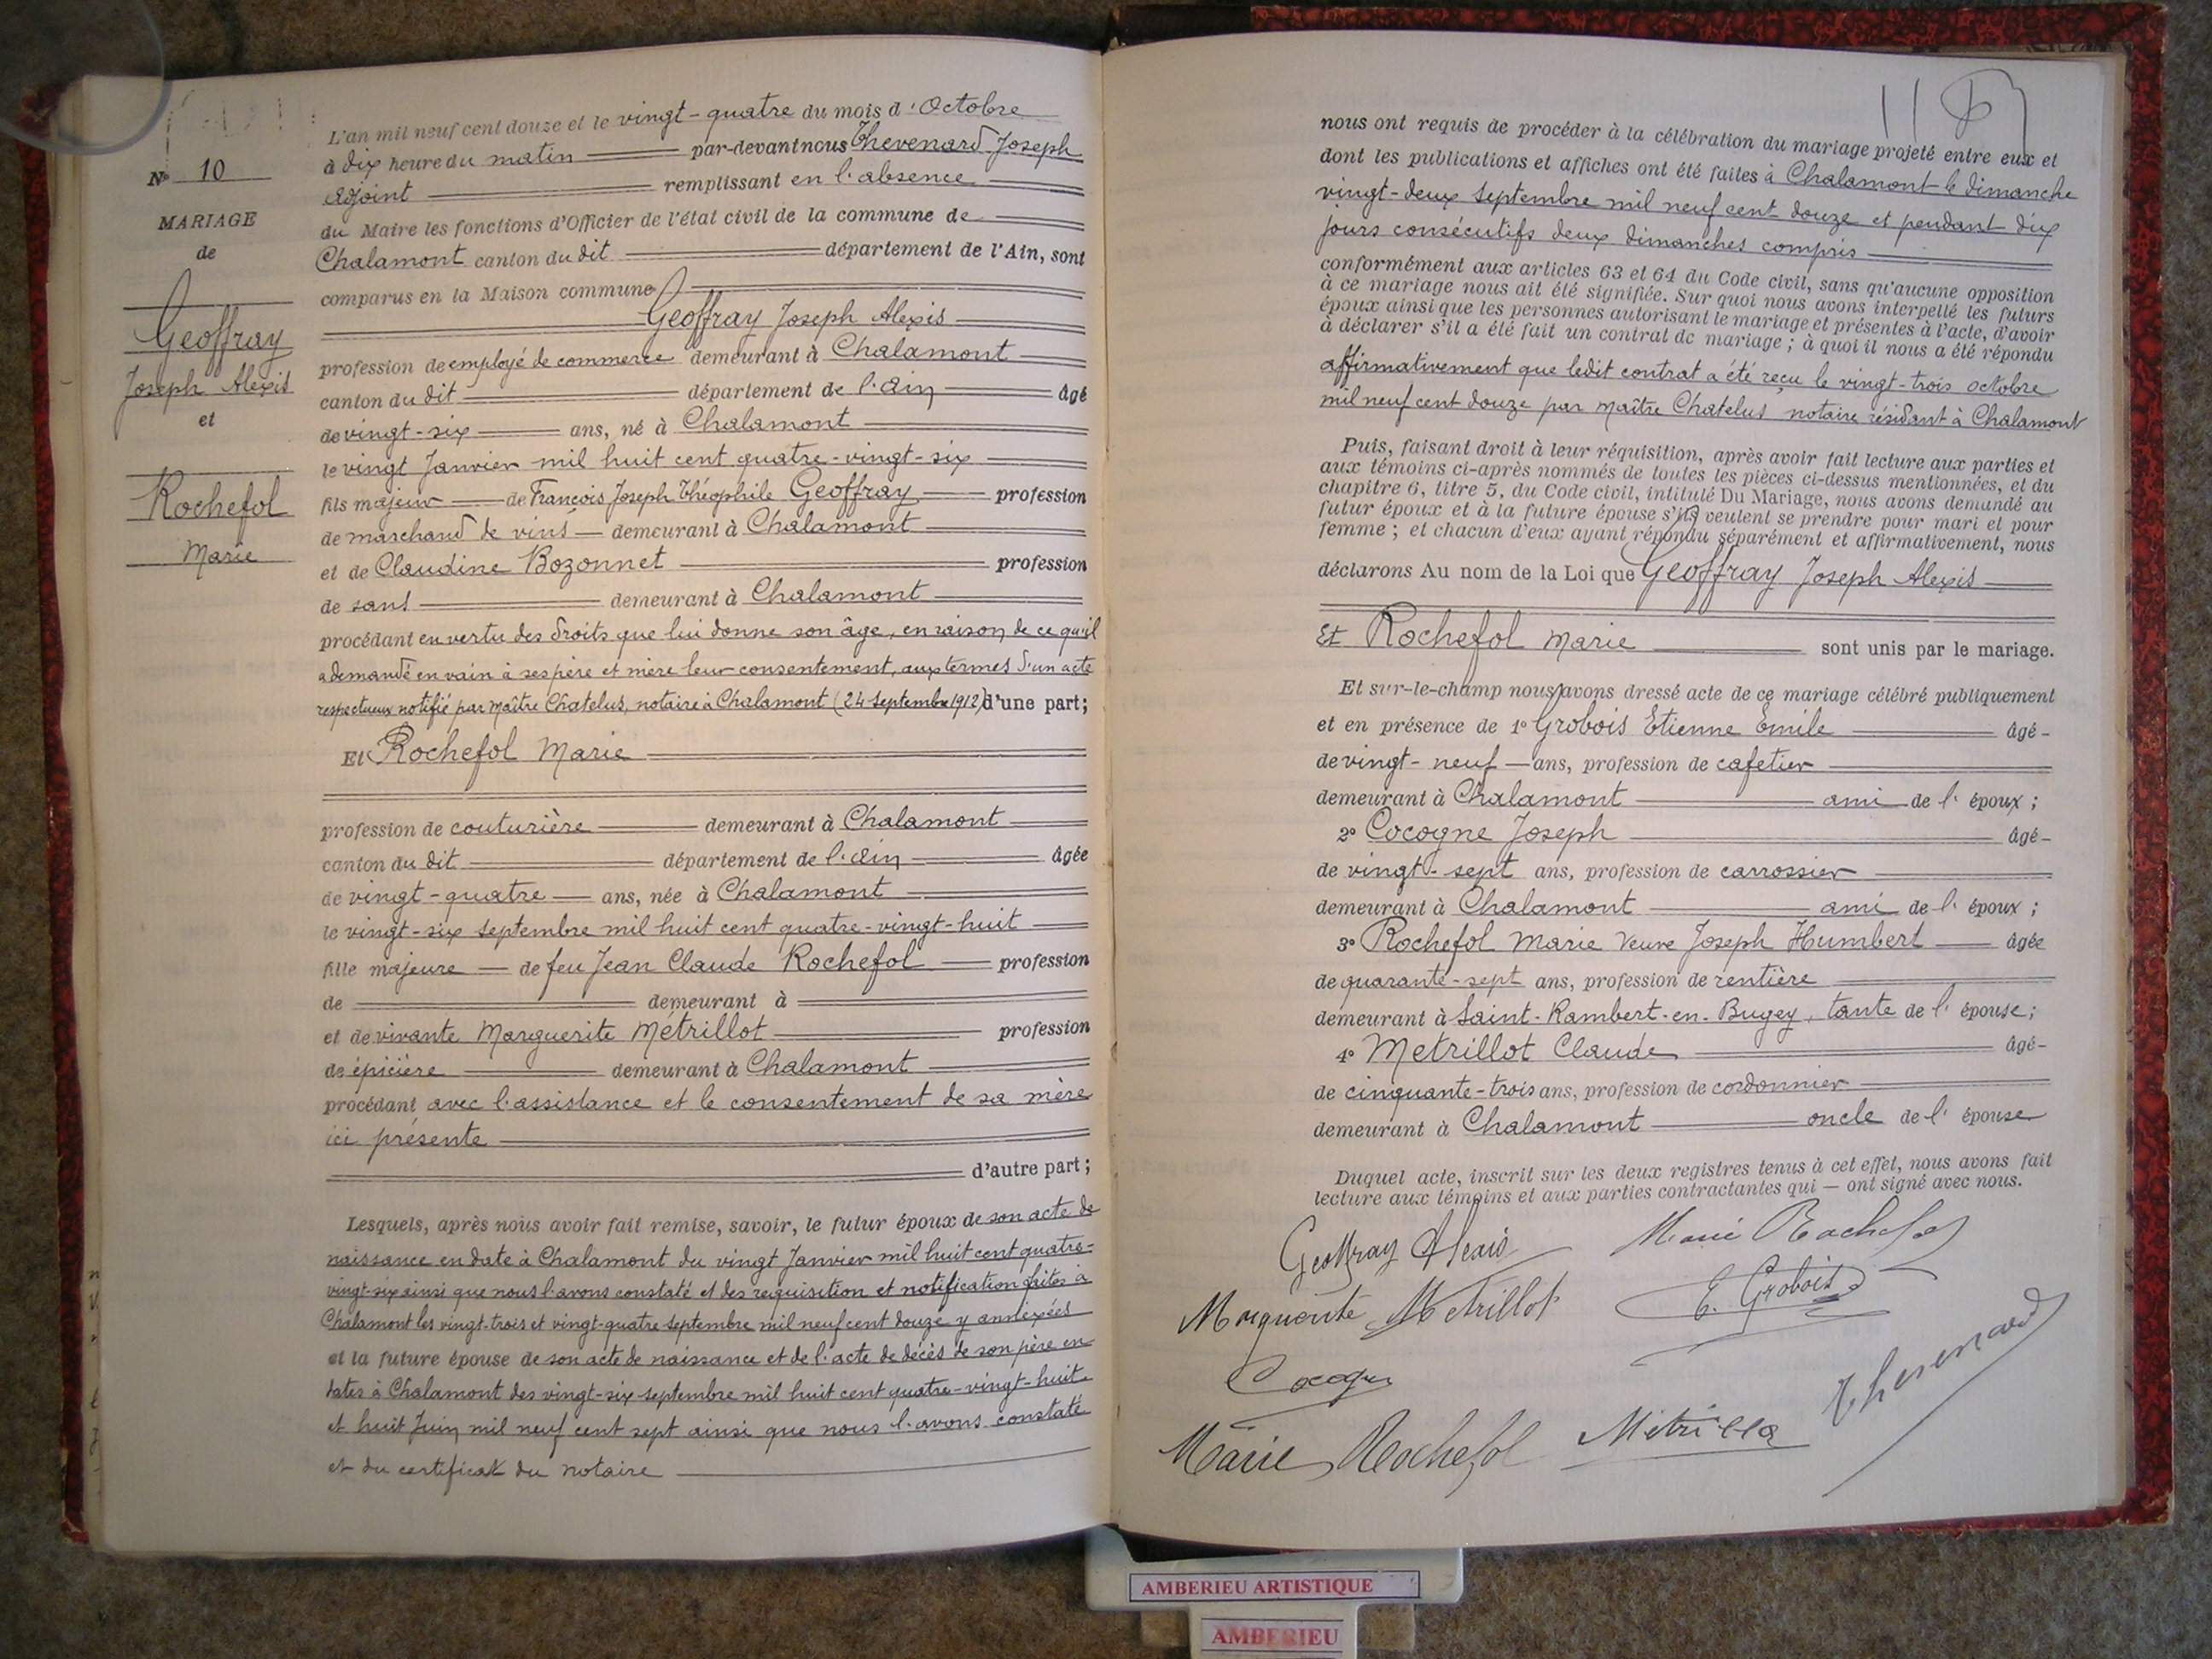 N° 10
MARIAGE
de
Geoffray
Joseph Alexis
et
Rochefol
Marie
L'an mil neuf cent douze et le vingt-quatre du mois d'Octobre
à dix heure du matin par-devant nous Thevenard Joseph
adjoint remplissant en l'absence
du Maire les fonctions d'Officier de l'état civil de la commune de
Chalamont canton du dit département de l'Ain, sont
comparus en la Maison commune
Geoffray Joseph Alexis
profession de employé de commerce demeurant à Chalamont
canton du dit département de l'Ain âgé
de vingt-six ans, né à Chalamont
le vingt Janvier mil huit cent quatre-vingt-six
fils majeur de François Joseph Théophile Geoffray profession
de marchand de vins demeurant à Chalamont
et de Claudine Bozonnet profession
de sans demeurant à Chalamont
procédant en vertu des droits que lui donne son âge, en raison de ce qu'il
a demandé en vain à ses père et mère leur consentement, aux termes d'un acte
respectueux notifié par Maître Chatelus, notaire à Chalamont (24 septembre 1912) d'une part;
Et Rochefol Marie
profession de couturière demeurant à Chalamont
canton du dit département de l'Ain âgée
de vingt-quatre ans, née à Chalamont
le vingt-six septembre mil huit cent quatre-vingt-huit
fille majeure de feu Jean Claude Rochefol profession
de demeurant à
et de vivante Marguerite Métrillot profession
de épicière demeurant à Chalamont
procédant avec l'assistance et le consentement de sa mère
ici présente
d'autre part;
Lesquels, après nous avoir fait remise, savoir, le futur époux de son acte de
naissance en date à Chalamont du vingt Janvier mil huit cent quatre-
vingt-six ainsi que nous l'avons constaté et des requisition et notification faites à
Chalamont les vingt-trois et vingt-quatre septembre mil neuf cent douze y annexées
et la future épouse de son acte de naissance et de l'acte de décès de son père en
dates à Chalamont des vingt-six septembre mil huit cent quatre-vingt-huit
et huit Juin mil neuf cent sept ainsi que nous l'avons constaté
et du certificat du notaire
nous ont requis de procéder à la célébration du mariage projeté entre eux et
dont les publications et affiches ont été faites à Chalamont le dimanche
vingt-deux septembre mil neuf cent douze et pendant dix
jours consécutifs deux dimanches compris
conformément aux articles 63 et 64 du Code civil, sans qu'aucune opposition
à ce mariage nous ait été signifiée. Sur quoi nous avons interpellé les futurs
époux ainsi que les personnes autorisant le mariage et présentes à l'acte, d'avoir
à déclarer s'il a été fait un contrat de mariage; à quoi il nous a été répondu
affirmativement que ledit contrat a été reçu le vingt-trois octobre
mil neuf cent douze par Maître Chatelus notaire résidant à Chalamont
Puis, faisant droit à leur réquisition, après avoir fait lecture aux parties et
aux témoins ci-après nommés de toutes les pièces ci-dessus mentionnées, et du
chapitre 6, titre 5, du Code civil, intitulé Du Mariage, nous avons demandé au
futur époux et à la future épouse s'ils veulent se prendre pour mari et pour
femme; et chacun d'eux ayant répondu séparément et affirmativement, nous
déclarons Au nom de la Loi que Geoffray Joseph Alexis
Et Rochefol Marie sont unis par le mariage.
Et sur-le-champ nous avons dressé acte de ce mariage célébré publiquement
et en présence de 1° Grobois Etienne Emile âgé
de vingt-neuf ans, profession de cafetier
demeurant à Chalamont ami de l'époux;
2° Cocogne Joseph âgé
de vingt-sept ans, profession de carrossier
demeurant à Chalamont ami de l'époux;
3° Rochefol Marie Veuve Joseph Humbert âgée
de quarante-sept ans, profession de rentière
demeurant à Saint-Rambert-en-Bugey, tante de l'épouse;
4° Metrillot Claude âgé
de cinquante-trois ans, profession de cordonnier
demeurant à Chalamont oncle de l'épouse
Duquel acte, inscrit sur les deux registres tenus à cet effet, nous avons fait
lecture aux témoins et aux parties contractantes qui — ont signé avec nous.
Geoffray Alexis Marie Rochefol
Marguerite Metrillot E. Grobois
Cocogne Thevenard
Marie Rochefol Métrillot
AMBERIEU ARTISTIQUE
AMBERIEU